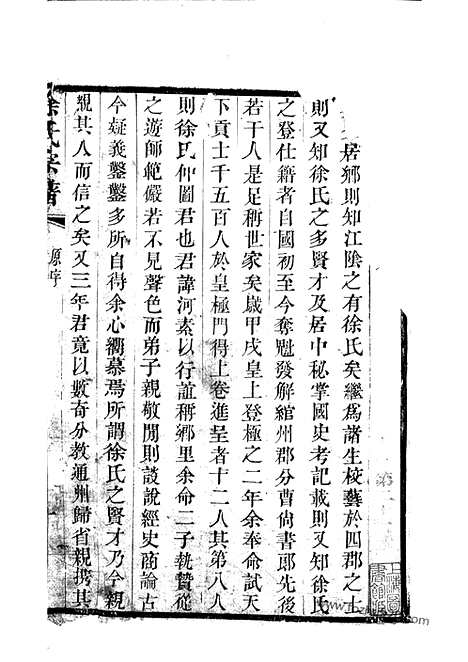 居鄉則知江陰之有徐氏矣繼爲諸生校藝於四郡之士
則又知徐氏之多賢才及居中秘掌國史考記載則又知徐氏
之登仕籍者自國初至今奪魁發解綰州郡分曹尙書郎先後
若干人是足稱世家矣歲甲戌皇上登極之二年余奉命試天
下貢士千五百人於皇極門得上卷進呈者十二人其第八人
則徐氏仲圖君也君諱河素以行誼稱鄉里余命二子執贄從
之遊師範嚴若不見聲色而弟子親敬閒則談說經史商論古
今疑義鑿鑿多所自得余心衢慕焉所謂徐氏之賢才乃今親
覩其人而信之矣又三年君竟以數奇分教通州歸省親携其
徐氏宗譜
原序